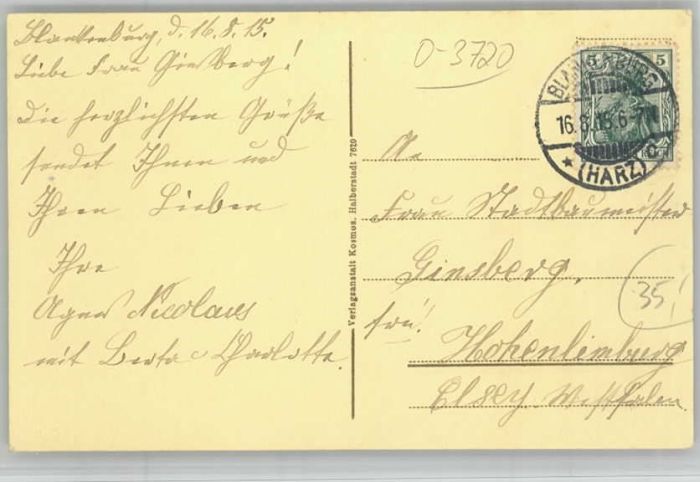 Blankenburg, d. 16.8.15.
Liebe Frau Ginsberg!
Die herzlichsten Grüße
sendet Ihnen und
Ihren Lieben
Ihre
Agnes Nicolaus
mit Berta u. Charlotte.
Verlagsanstalt Kosmos, Halberstadt 7629
O-3720
5 5
BLANKENBURG
16.8.15.6-7N
* (HARZ) c
An
Frau Stadtbaumeister
Ginsberg,
frei!
35
Hohenlimburg
Elsey. Westfalen.